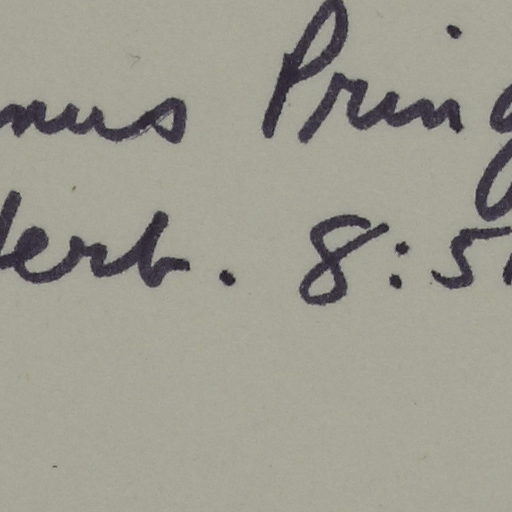 nus Pring
Herb. 8:51